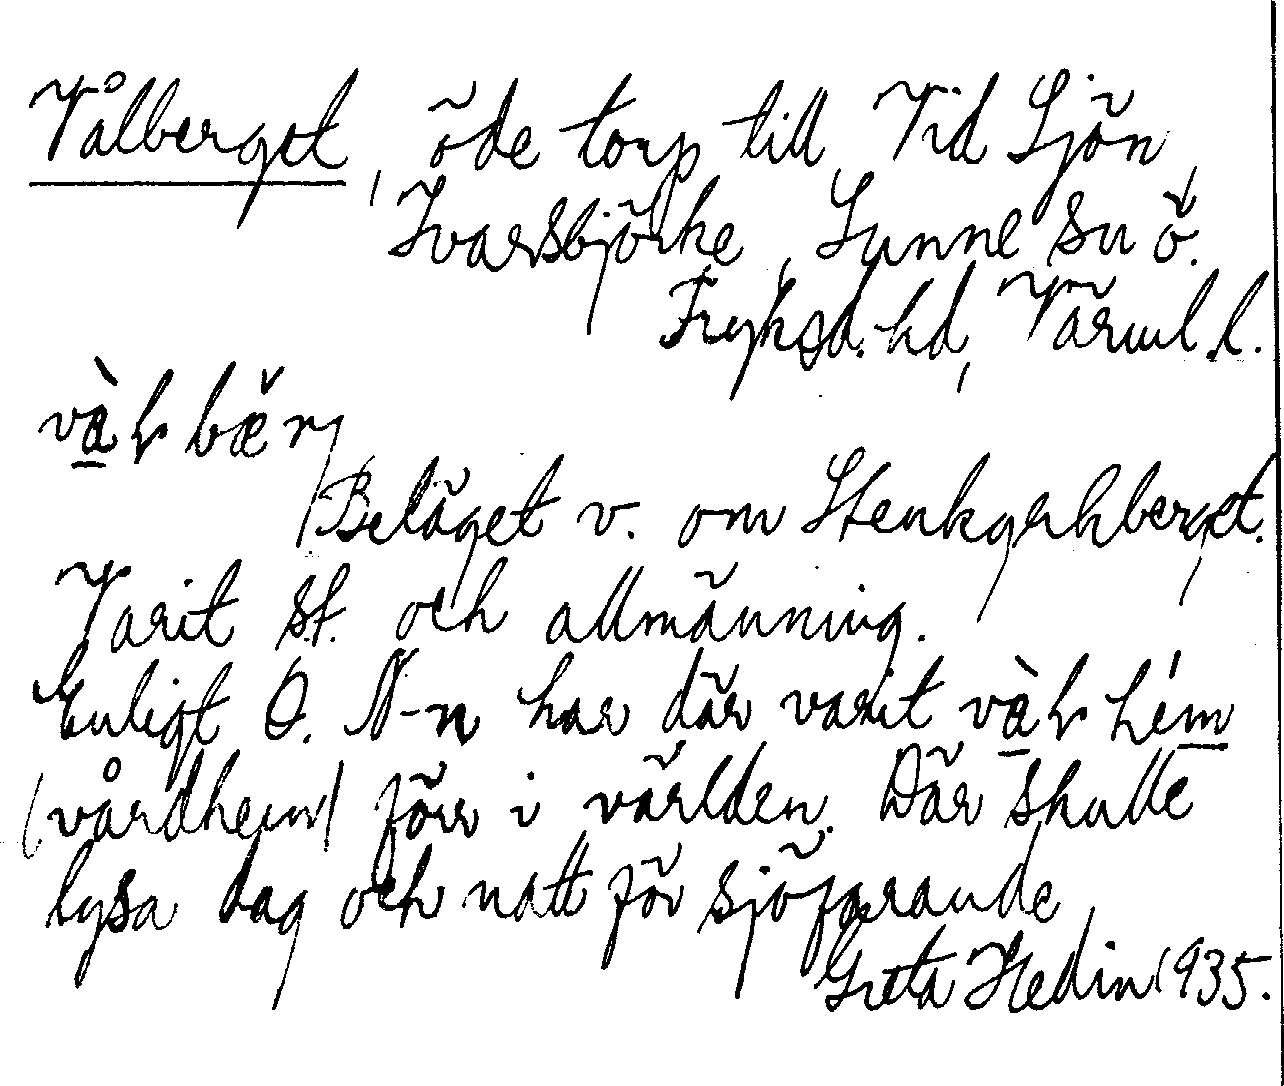 Vålberget, öde torp till Vid Sjön,
Ivarsbjörke, Sunne sn ö.
Fryksd. hd, Värml. l.
Beläget v. om Stenkyrkberget.
Varit st. och allmänning.
Enligt O. N-n har där varit
(vårdhem) förr i världen. Där skulle
lysa dag och natt för sjöfarande.
Greta Hedin 1935.